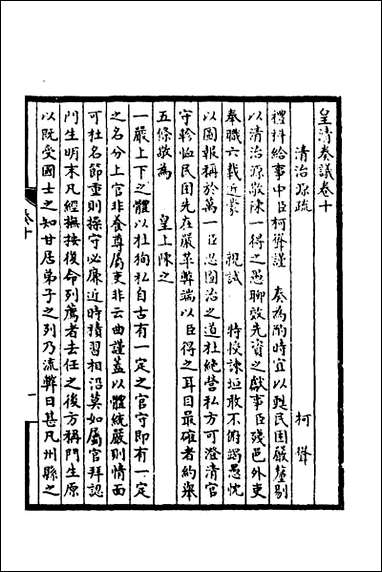 皇清奏議卷十
清治源疏 柯聳
禮科給事中臣柯聳謹 奏為酌時宜以甦民困嚴釐剔
以清治源敬陳一得之愚聊效先資之獻事臣殘邑外吏
奉職六載近蒙 親試 特授諫垣敢不俯竭愚忱
以圖報稱於萬一臣思圖治之道杜絕營私方可澄清官
守軫恤民困先在嚴革弊端以臣得之耳目最確者約舉
五條敬為 皇上陳之
一嚴上下之體以杜狥私自古有一定之官守即有一定
之名分上官非養尊屬吏非云曲謹蓋以體統嚴則情面
可杜名節重則操守必廉近時積習相沿莫如屬官拜認
門生明末凡經撫按復命列薦者去任之後方稱門生原
以既受國士之知甘居弟子之列乃流弊日甚凡州縣之
卷十
一